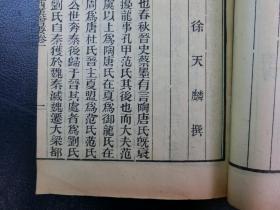 徐天麟撰
也春秋晉史蔡墨有言陶唐氏旣衰
擾龍事孔甲范氏其後也而大夫范
虞以上爲陶唐氏在夏爲御龍氏在
周爲唐杜氏晉主夏盟爲范氏范氏
公世奔秦後歸于晉其處者爲劉氏
劉氏自秦獲於魏秦滅魏遷大梁都